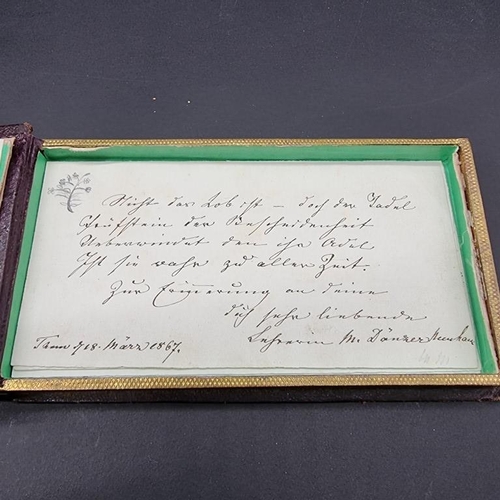 Nicht das Lob ist – doch der Tadel
Prüfstein der Bescheidenheit
Ueberwindet den ihr Adel
Ist sie wahr zu aller Zeit.
Zur Erinnerung an deine
dich sehr liebende
Lehrerin M. Dänzer
Tann d/18. März 1867.